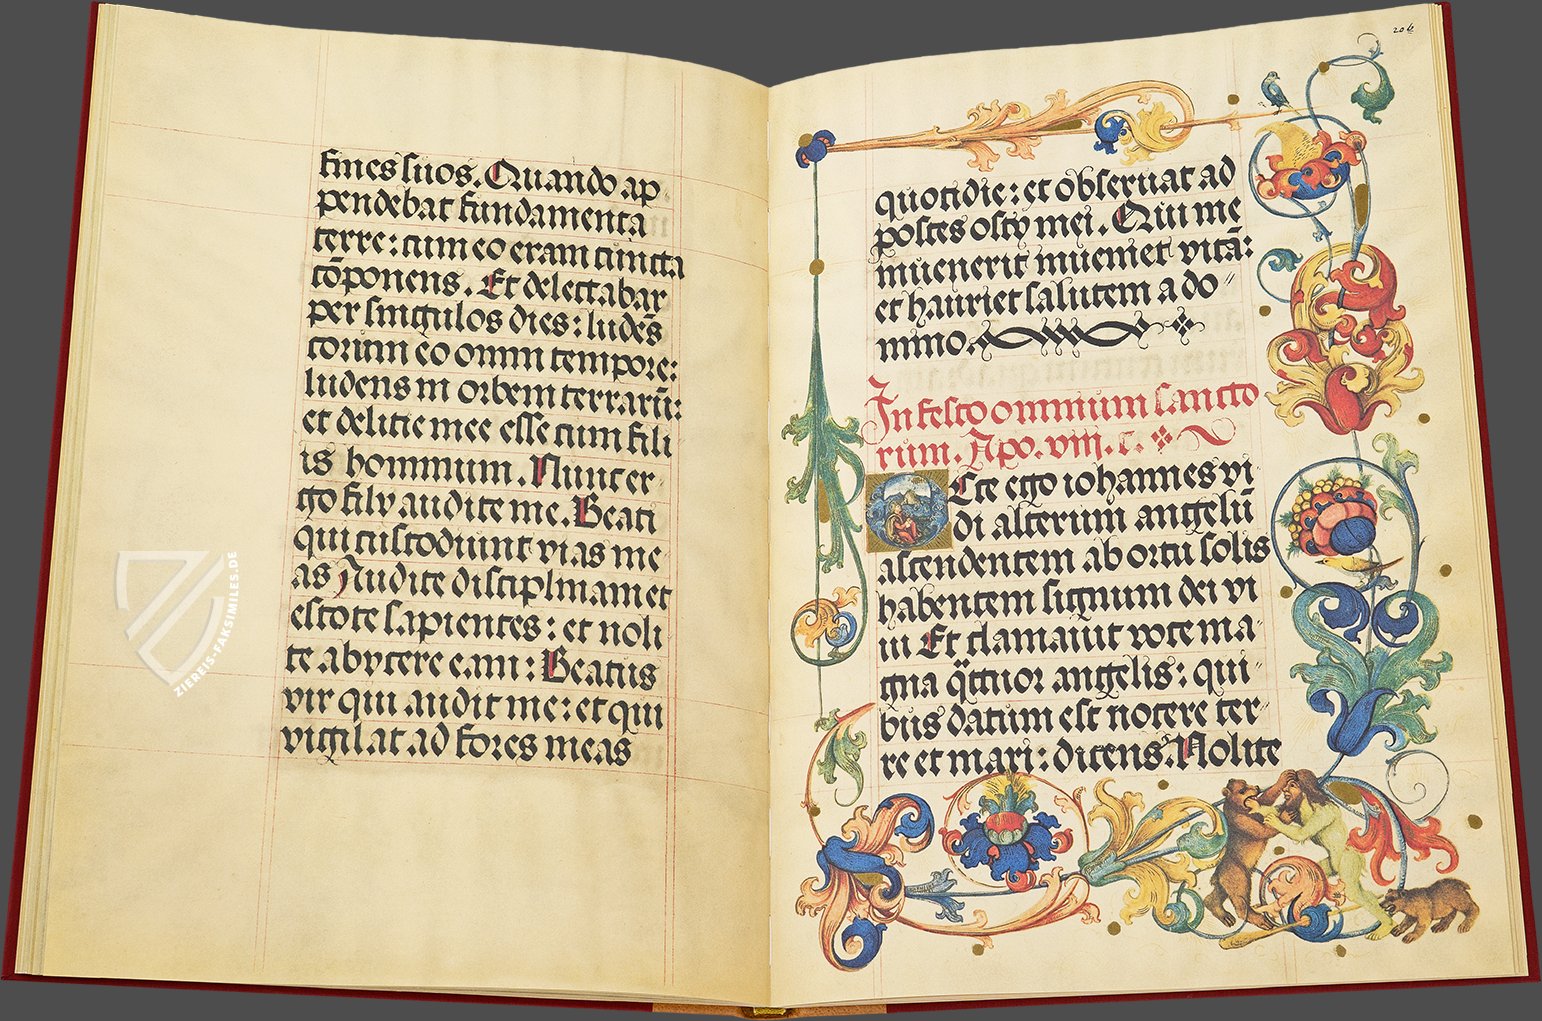 fines suos. Quando ap
pendebat fundamenta
terre: cum eo eram cuncta
cōponens. Et delectabar
per singulos dies: ludēs
coram eo omni tempore:
ludens in orbem terrarū:
et delicie mee esse cum fili
is hominum. Nunc er
go filÿ audite me. Beati
qui custodiunt vias me
as Audite disciplinam et
estote sapientes: et noli
te abycere eam: Beatus
vir qui audit me: et qui
vigilat ad fores meas
ZIEREIS-FAKSIMILES.DE
206
quotidie: et observat ad
postes osty mei. Qui me
invenerit inveniet vitā:
et hauriet salutem a do〃
mino.
In festo omnium sancto
rum. Apo. viii. c.
Ecce ego iohannes vi
di alterum angelū
ascendentem ab ortu solis
habentem signum dei vi
vi Et clamavit voce ma〃
gna q̄ttuor angelis: qui〃
bus datum est nocere ter〃
re et mari: dicens. Nolite